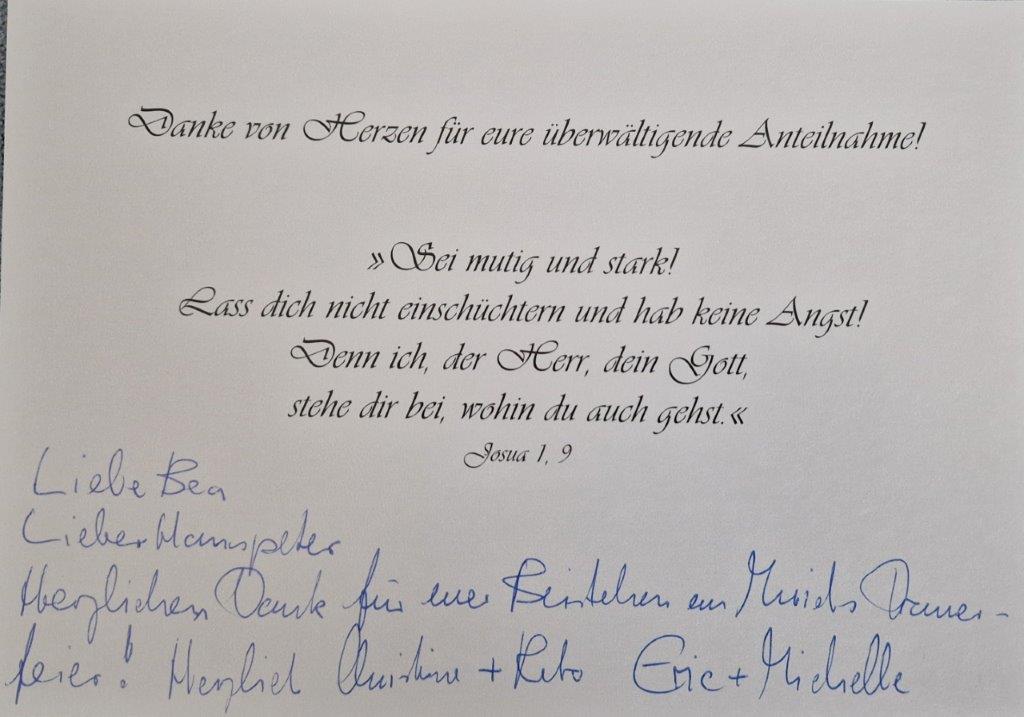 Danke von Herzen für eure überwältigende Anteilnahme!
»Sei mutig und stark!
Lass dich nicht einschüchtern und hab keine Angst!
Denn ich, der Herr, dein Gott,
stehe dir bei, wohin du auch gehst.«
Josua 1, 9
Liebe Bea
Lieber Hanspeter
Herzlichen Dank für euer Beistehen an Trauer-
feier! Herzlich Christine + Reto Eric + Michelle